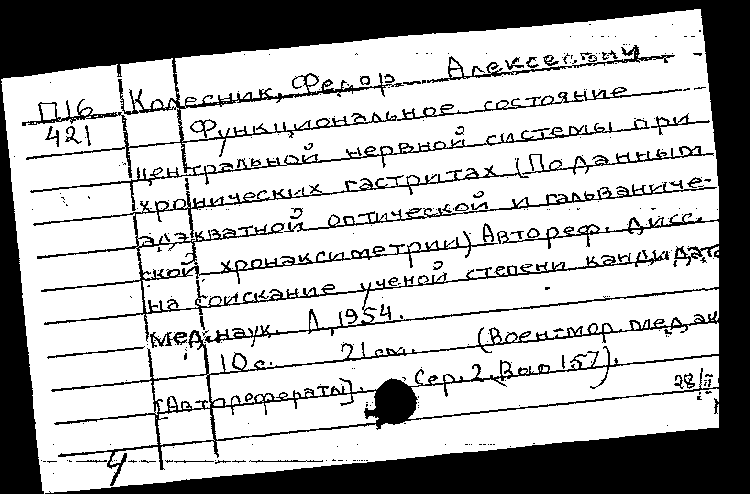 П16 Колесник, Федор Алексеевич
421 Функциональное состояние
центральной нервной системы при
хронических гастритах (По данным
адэкватной оптической и гальваниче-
ской хронаксиметрии) Автореф. дисс.
на соискание ученой степени кандидата
мед. наук. Л, 1954.
10 с. 21 см. (Воен. мор. мед. ак
[Авторефераты]. Сер. 2. Вып 157).
28/II
4